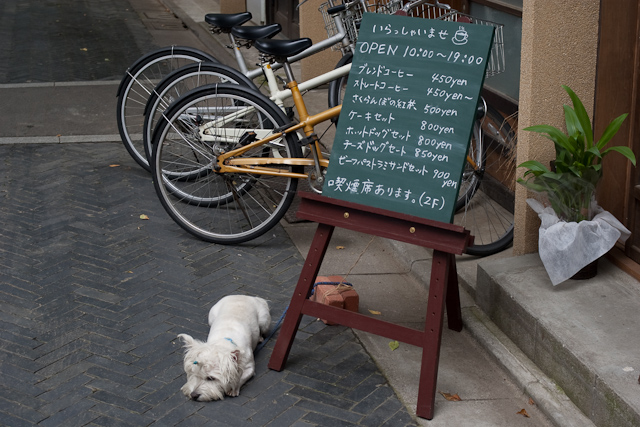 いらっしゃいませ
OPEN 10:00~19:00
ブレンドコーヒー 450yen
ストレートコーヒー 450yen~
さくらんぼの紅茶 500yen
ケーキセット 800yen
ホットドッグセット 800yen
チーズドッグセット 850yen
ビーフパストラミサンドセット 900yen
喫煙席あります。(2F)